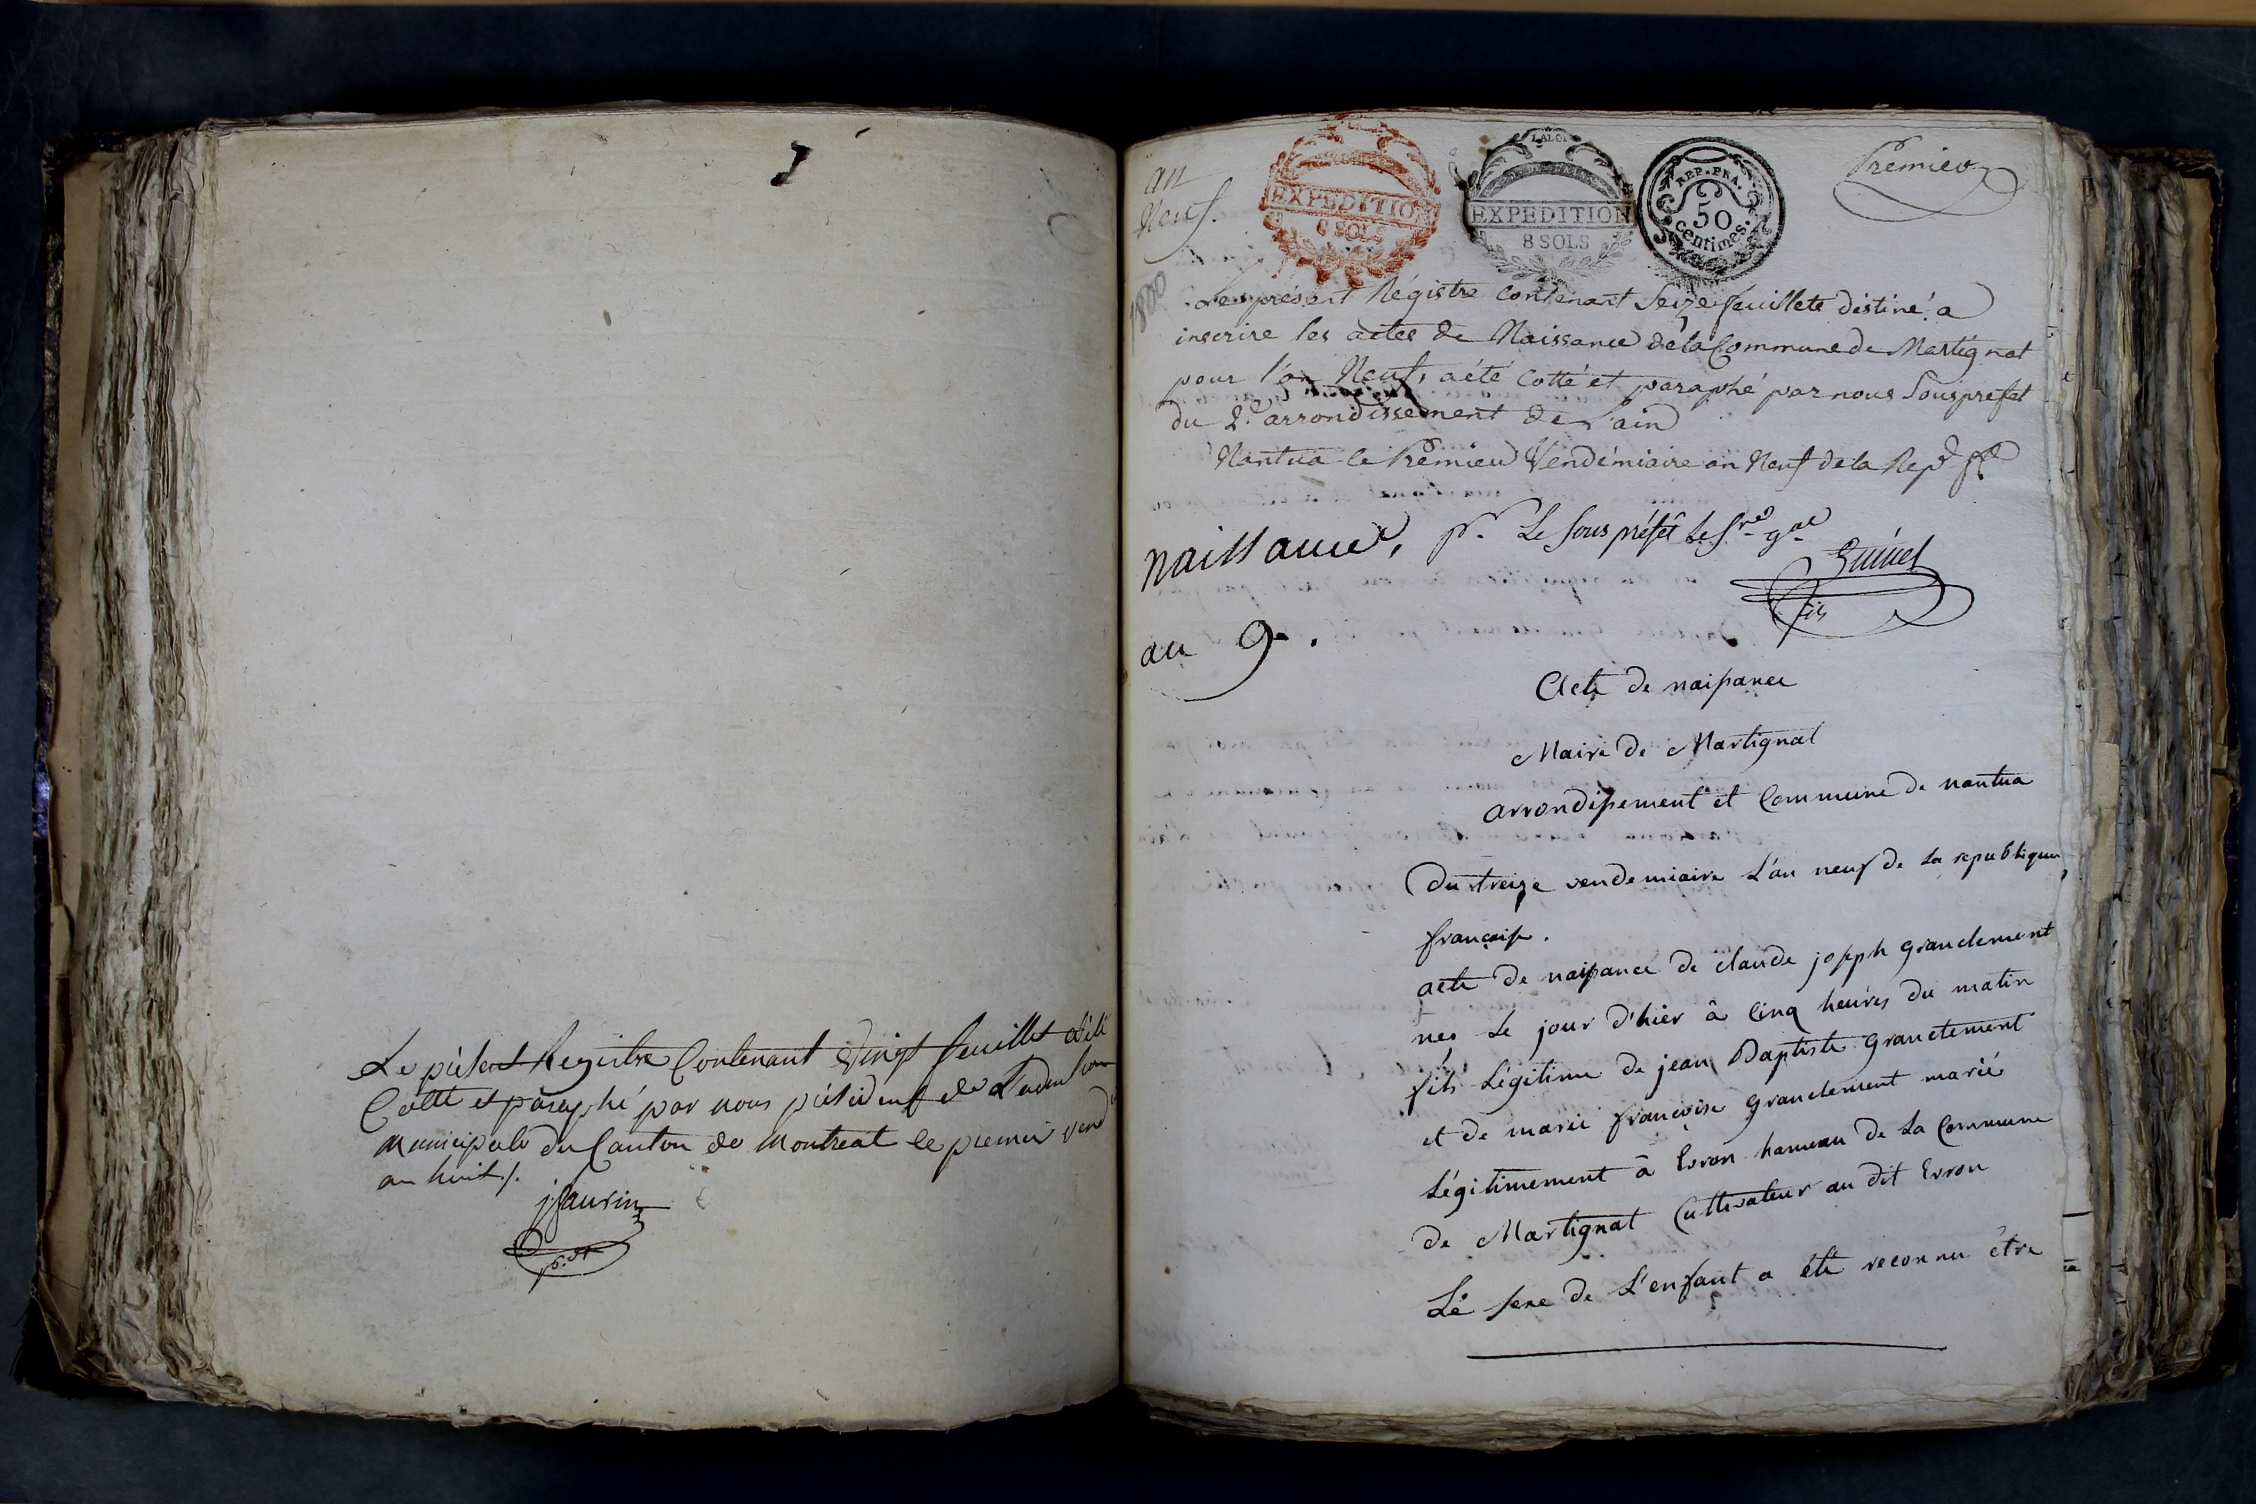 Le présent Registre Contenant Vingt feuillet a été
Cotté et paraphé par nous président de L'adm.on
Municipale du Canton de Montreal le premier vend
an huit /.
jfaurin
p.dt
an
Neuf.
1800
LA LOI
EXPEDITION
8 SOLS
LA LOI
EXPEDITION
8 SOLS
REP. FRA.
50
centimes.
Premier
Le présent Régistre contenant Seize feuillets déstiné a
inscrire les actes de Naissance de la Commune de Martignat
pour l'an Neuf, a été Cotté et paraphé par nous Sousprefet
du 2.e arrondissement de l'ain
Nantua le Premier Vendémiaire an Neuf de la Rep.e fse
naissance, pr. Le Sous préfet Le S.re g.al
fils
an 9.
Acte de naissance
Mairie de Martignat
arrondissement et Commune de nantua
Du treize vendemiaire L'an neuf de La republique
française.
acte de naissance de claude joseph grandclement
nes Le jour d'hier à Cinq heures du matin
fils Légitime de jean Baptiste grandclement
et de marie françoise grandclement mariés
Légitimement à Evron hameau de La Commune
de Martignat Cultivateur au dit Evron
Le sexe de L'enfant a été reconnu être